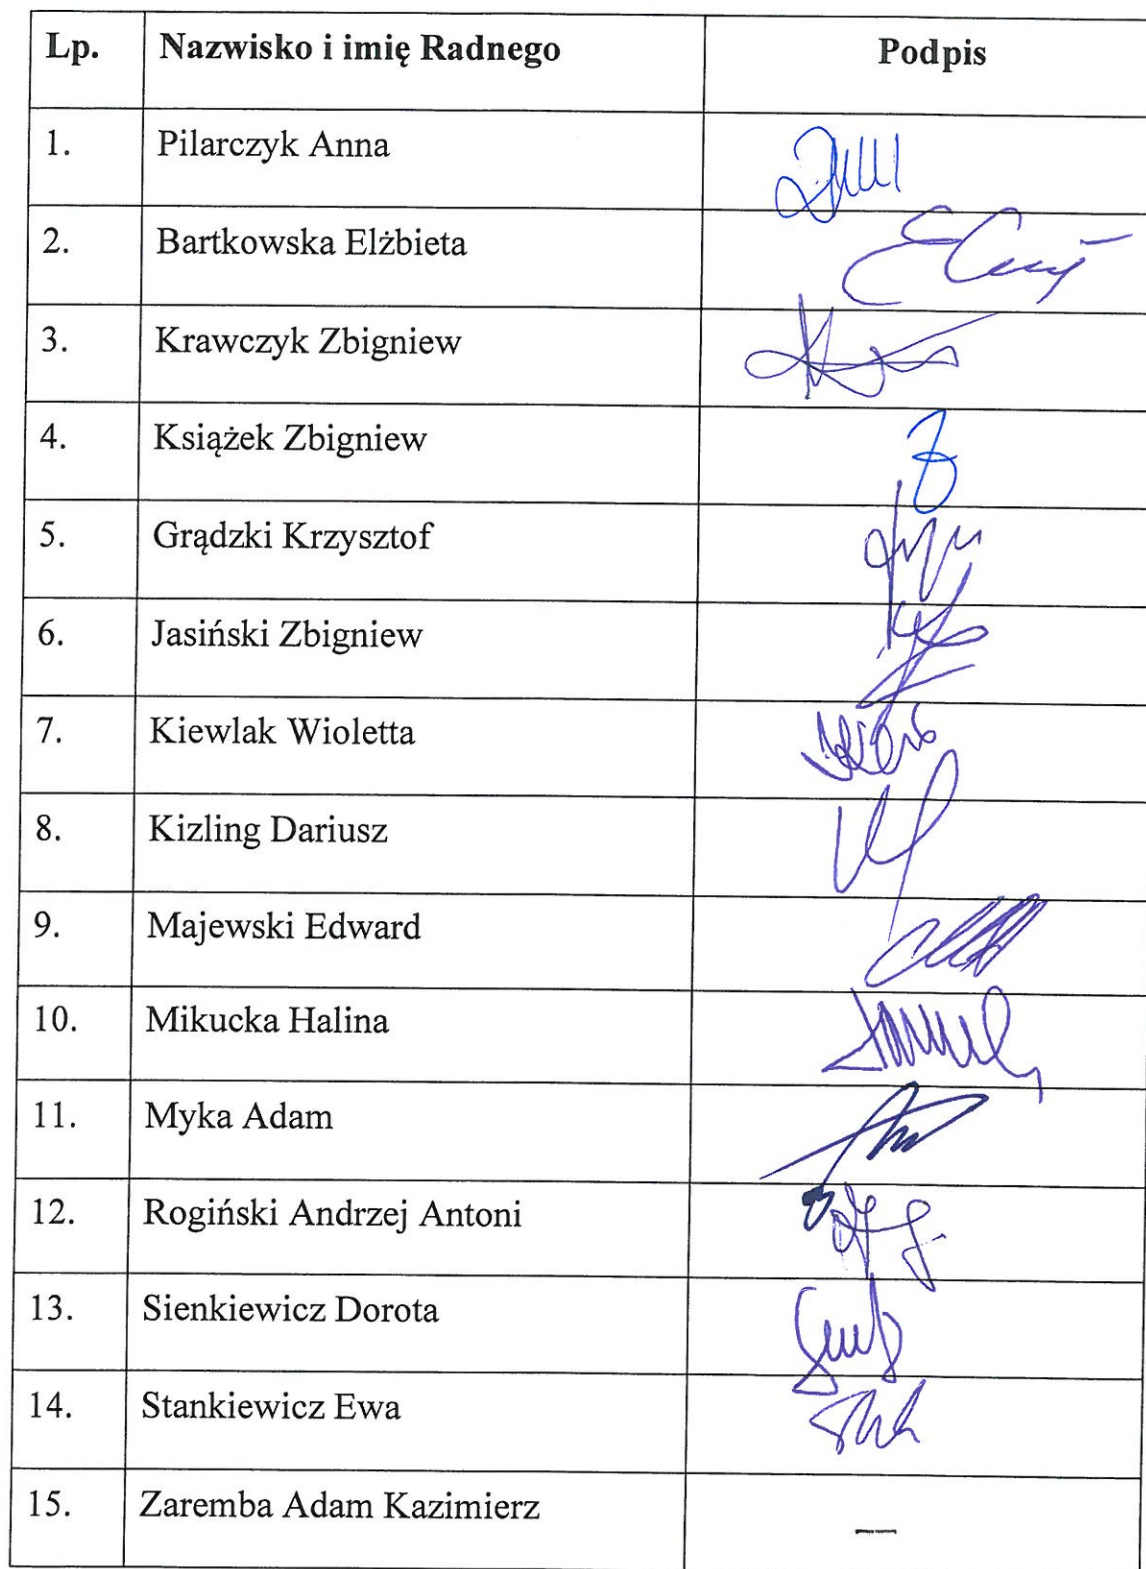 Lp. Nazwisko i imię Radnego Podpis
1. Pilarczyk Anna
2. Bartkowska Elżbieta
3. Krawczyk Zbigniew
4. Książek Zbigniew
5. Grądzki Krzysztof
6. Jasiński Zbigniew
7. Kiewlak Wioletta
8. Kizling Dariusz
9. Majewski Edward
10. Mikucka Halina
11. Myka Adam
12. Rogiński Andrzej Antoni
13. Sienkiewicz Dorota
14. Stankiewicz Ewa
15. Zaremba Adam Kazimierz —